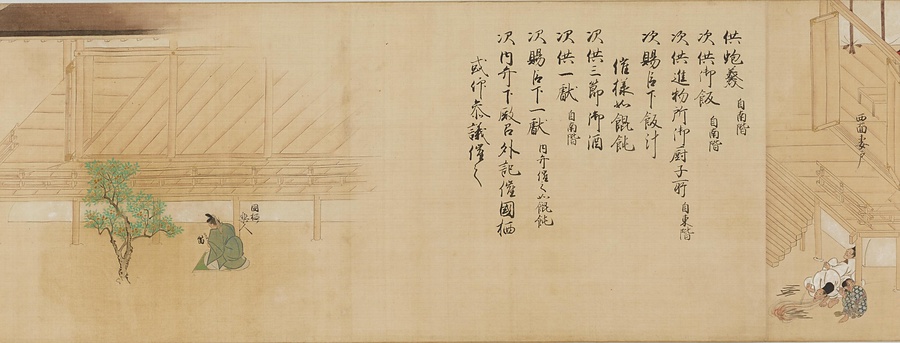 西面妻戸
供蚫羹 自南階
次供御飯 自南階
次供進物所御厨子所 自東階
次賜臣下飯汁
催様如餛飩
次供三節御酒
次供一献 自南階
次賜臣下一献 内弁催之如餛飩
次内弁下殿召外記催國栖
或仰参議催之
國栖